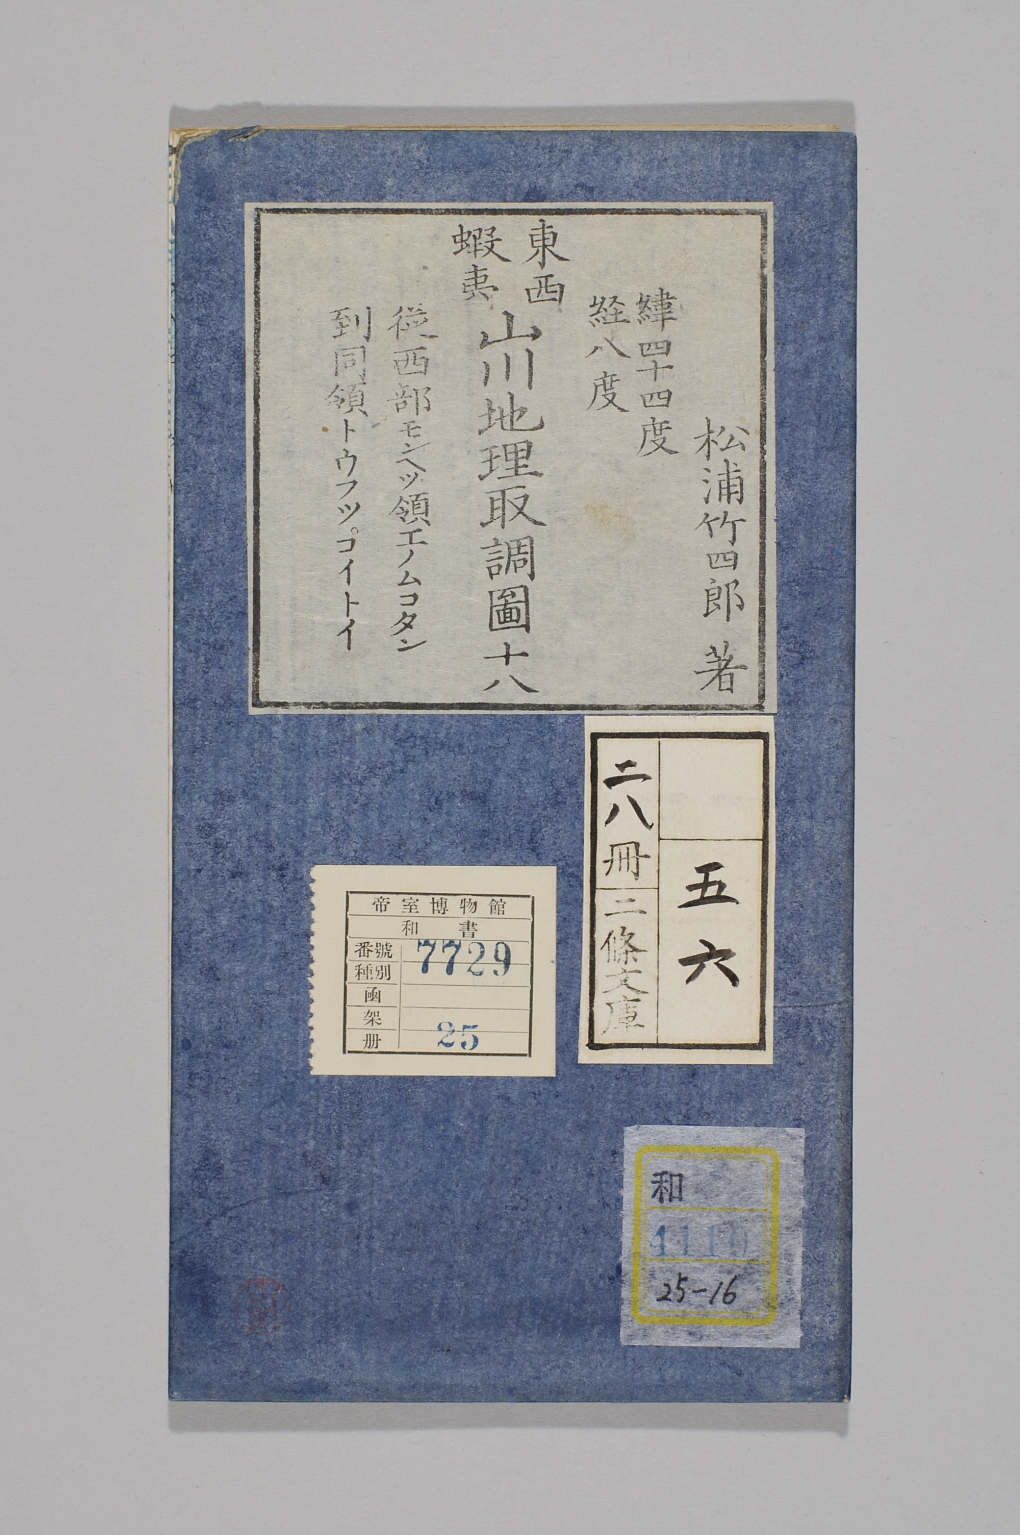 松浦竹四郎 著
緯四十四度
経八度
東西
蝦夷
山川地理取調圖十八
従西部モンヘツ領エノムコタン
到同領トウフツ゚コイトイ
五六
二八冊
二條文庫
帝室博物館
和書
番號 7729
種別
函
架
册 25
和
4110
25-16